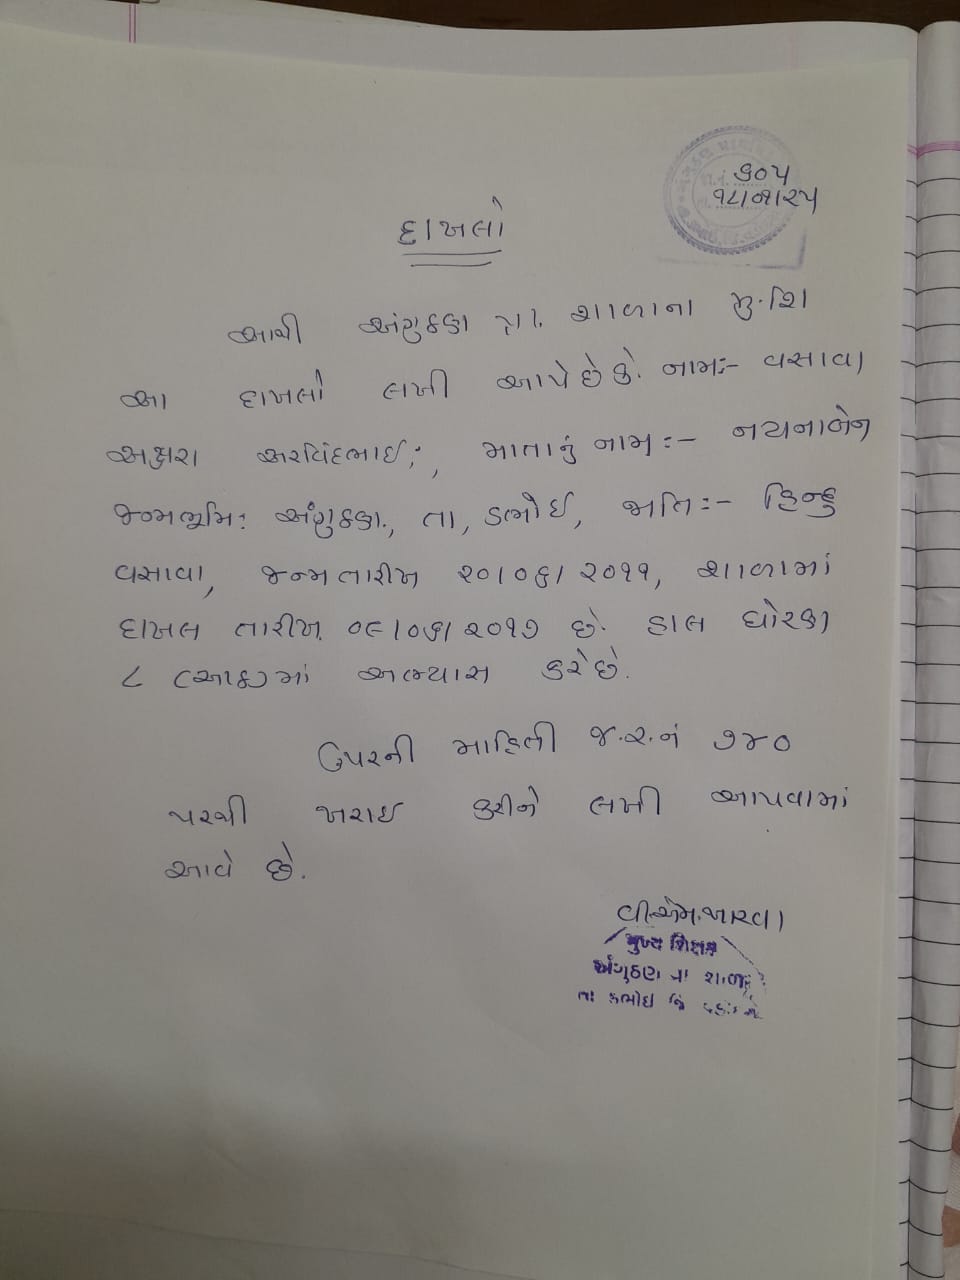 ૬૦૫
૧૮/૧૧/૨૫
દાખલો
આથી અંગુઠણ પ્રા. શાળાના મુ.શિ
આ દાખલો લખી આપે છે કે. નામઃ- વસાવા
અક્ષરા અરવિંદભાઈ, માતાનું નામઃ- નયનાબેન
જન્મભૂમિઃ અંગુઠણ, તા, ડભોઈ, જાતિઃ- હિન્દુ
વસાવા, જન્મ તારીખ ૨૦/૦૬/૨૦૧૧, શાળામાં
દાખલ તારીખ ૦૯/૦૬/૨૦૧૭ છે. હાલ ધોરણ
૮ (આઠ)માં અભ્યાસ કરે છે.
ઉપરની માહિતી જ.ર.નં ૭૪૦
પરથી ખરાઇ કરીને લખી આપવામાં
આવે છે.
મુખ્ય શિક્ષક
અંગુઠણ પ્રા શાળા
તા ડભોઇ જિ